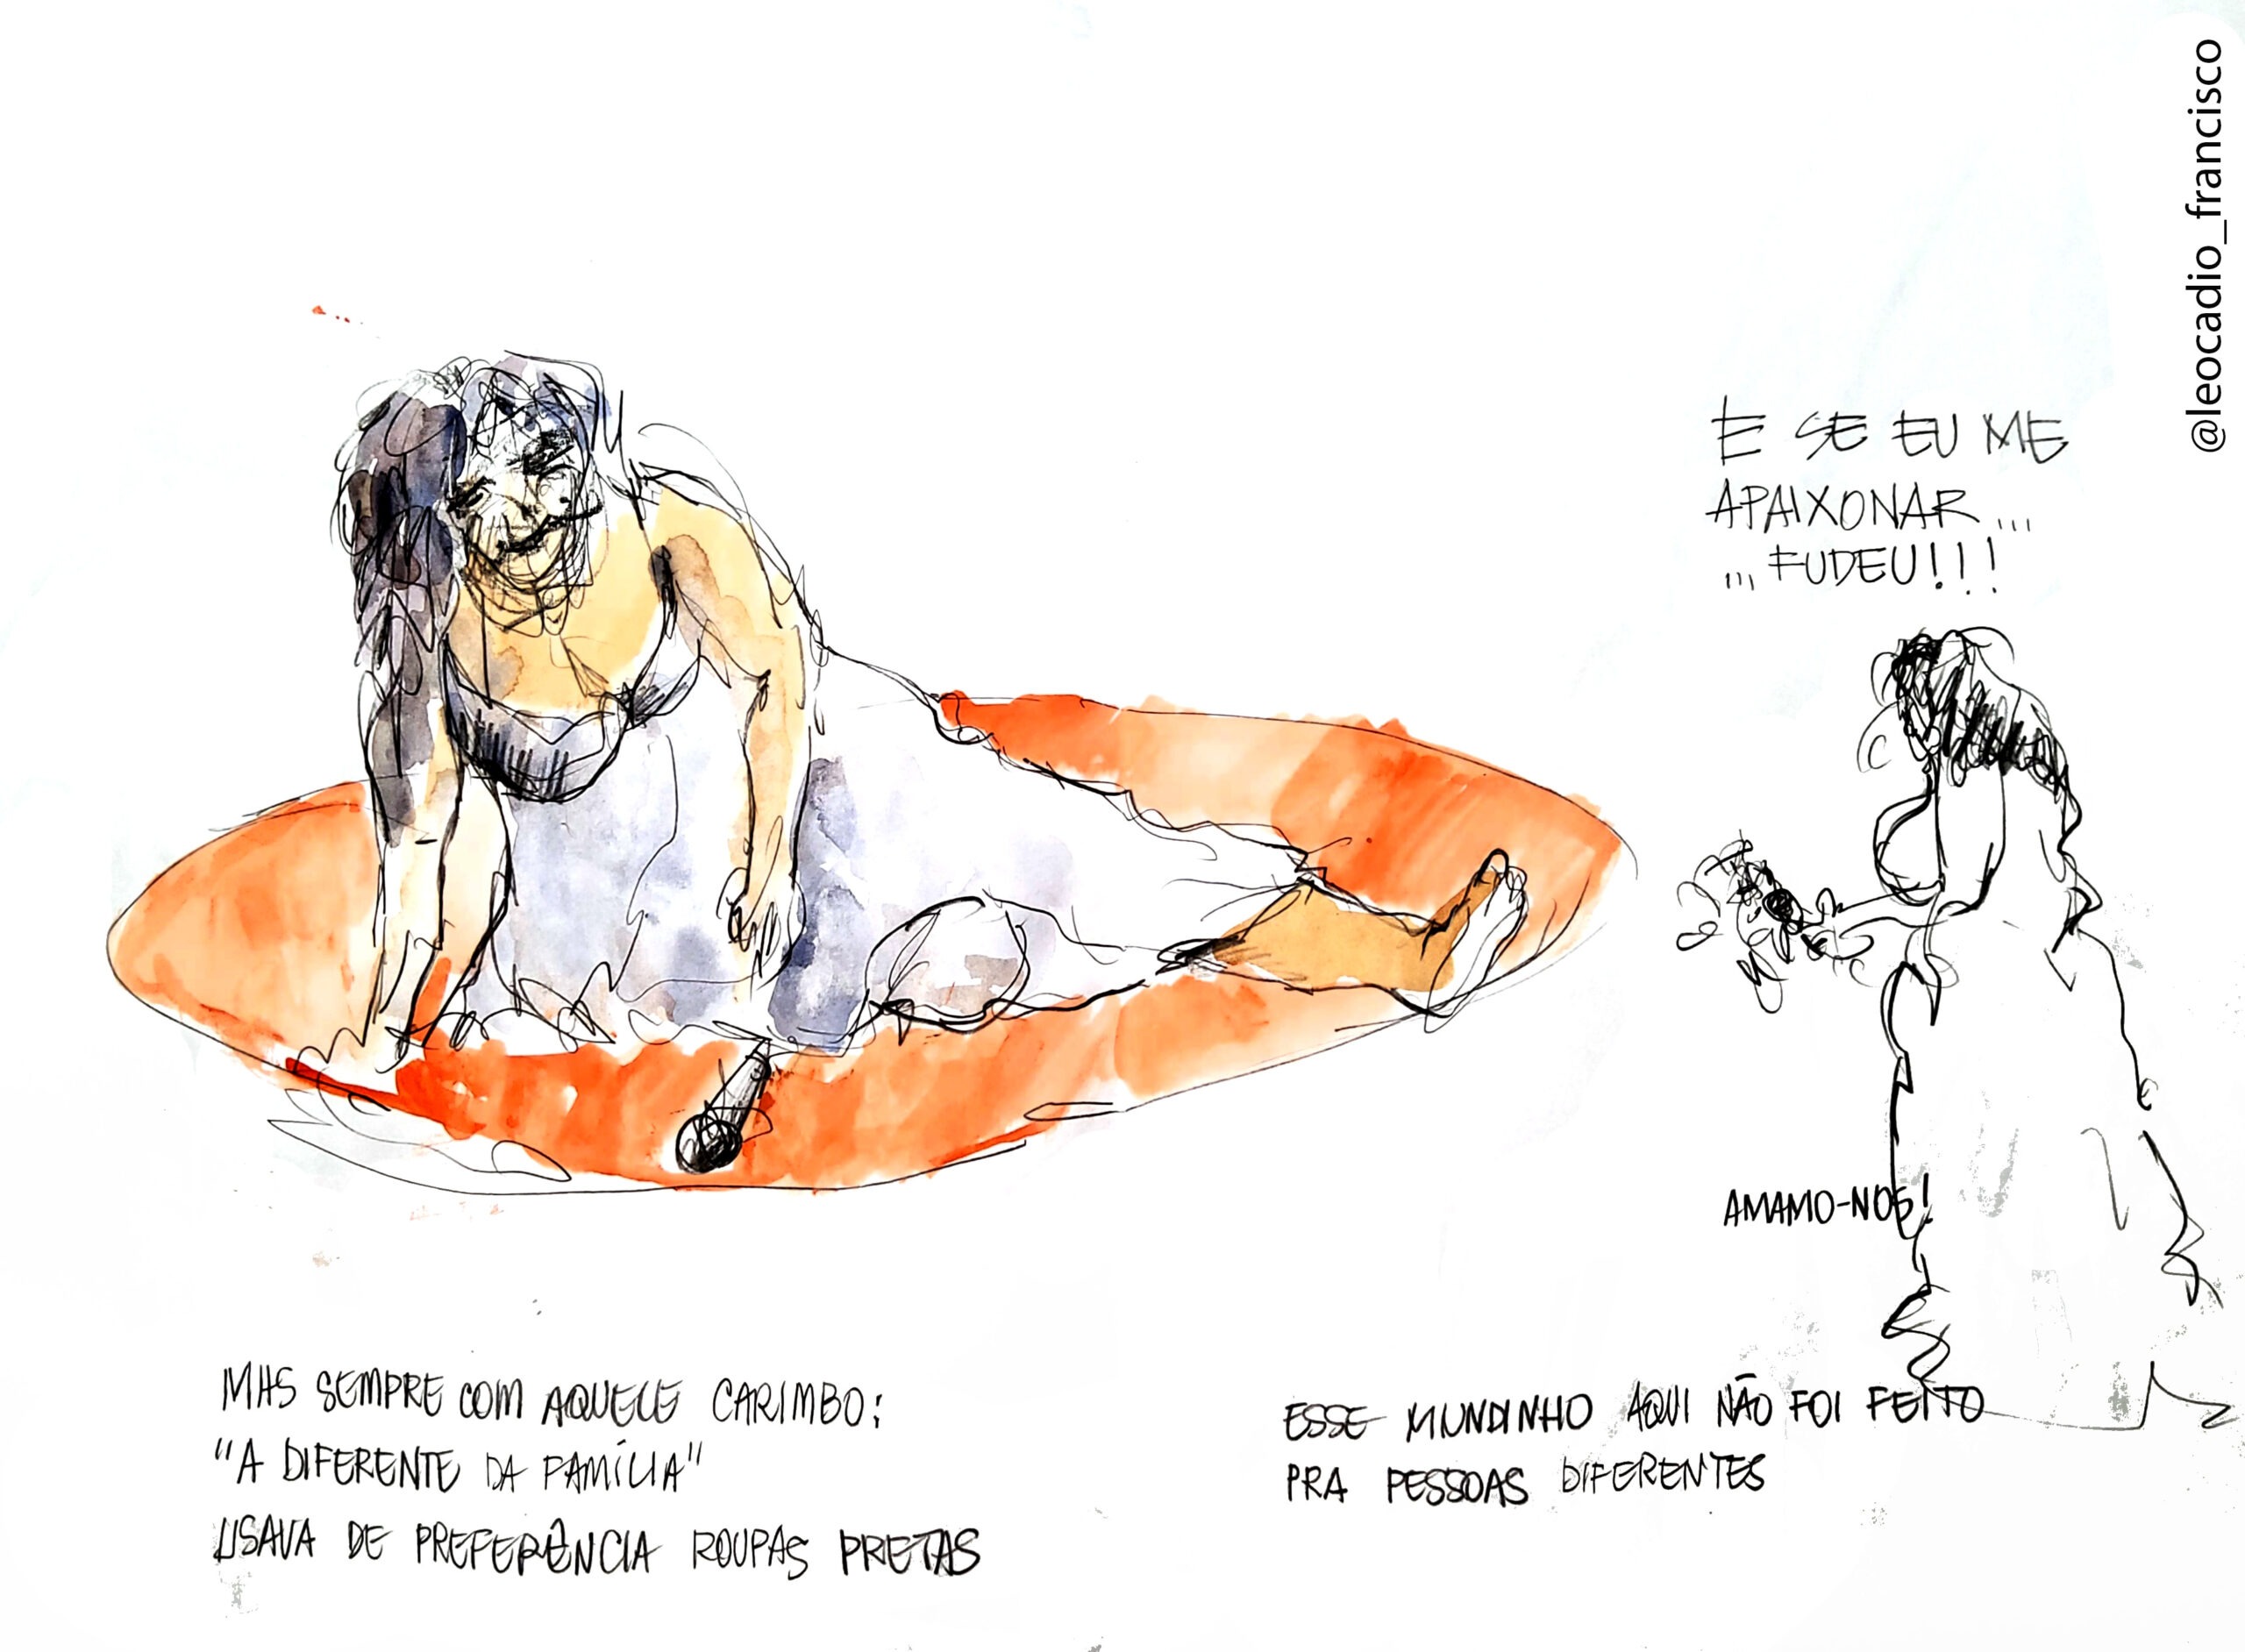 @leocadio_francisco
E SE EU ME
APAIXONAR...
... FUDEU!!!
AMAMO-NOS!
MAS SEMPRE COM AQUELE CARIMBO:
"A DIFERENTE DA FAMÍLIA"
USAVA DE PREFERÊNCIA ROUPAS PRETAS
ESSE MUNDINHO AQUI NÃO FOI FEITO
PRA PESSOAS DIFERENTES